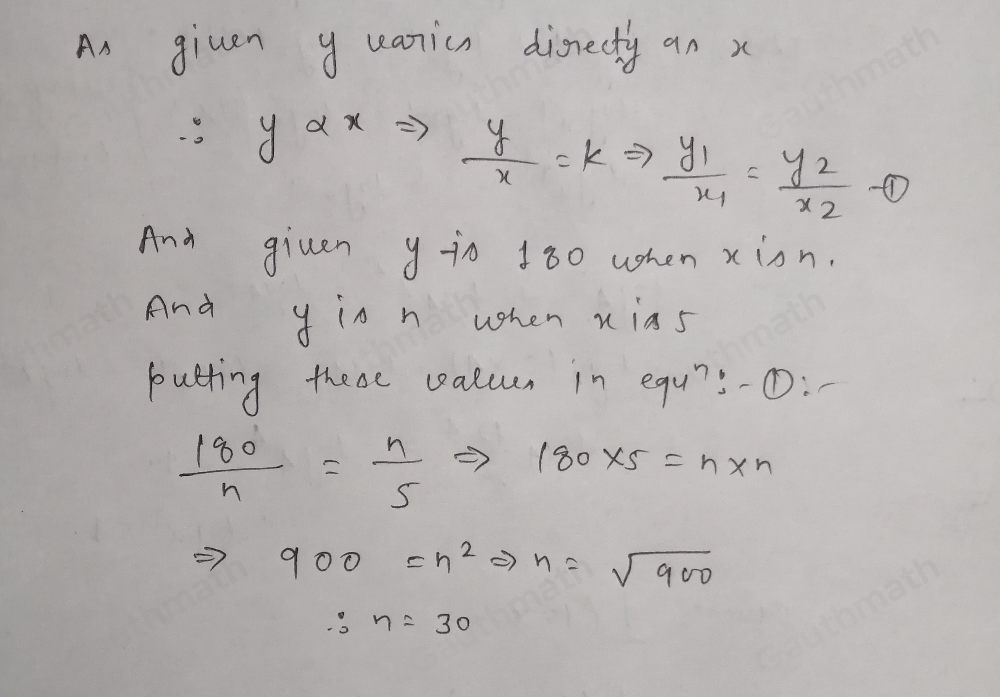 As given y varies directly as x
∴ y ∝ x ⇒ y/x = k ⇒ y1/x1 = y2/x2 -①
And given y is 180 when x is n.
And y is n when x is 5
putting these values in equⁿ:- ①:-
180/n = n/5 ⇒ 180 x 5 = n x n
⇒ 900 = n² ⇒ n = √900
∴ n = 30